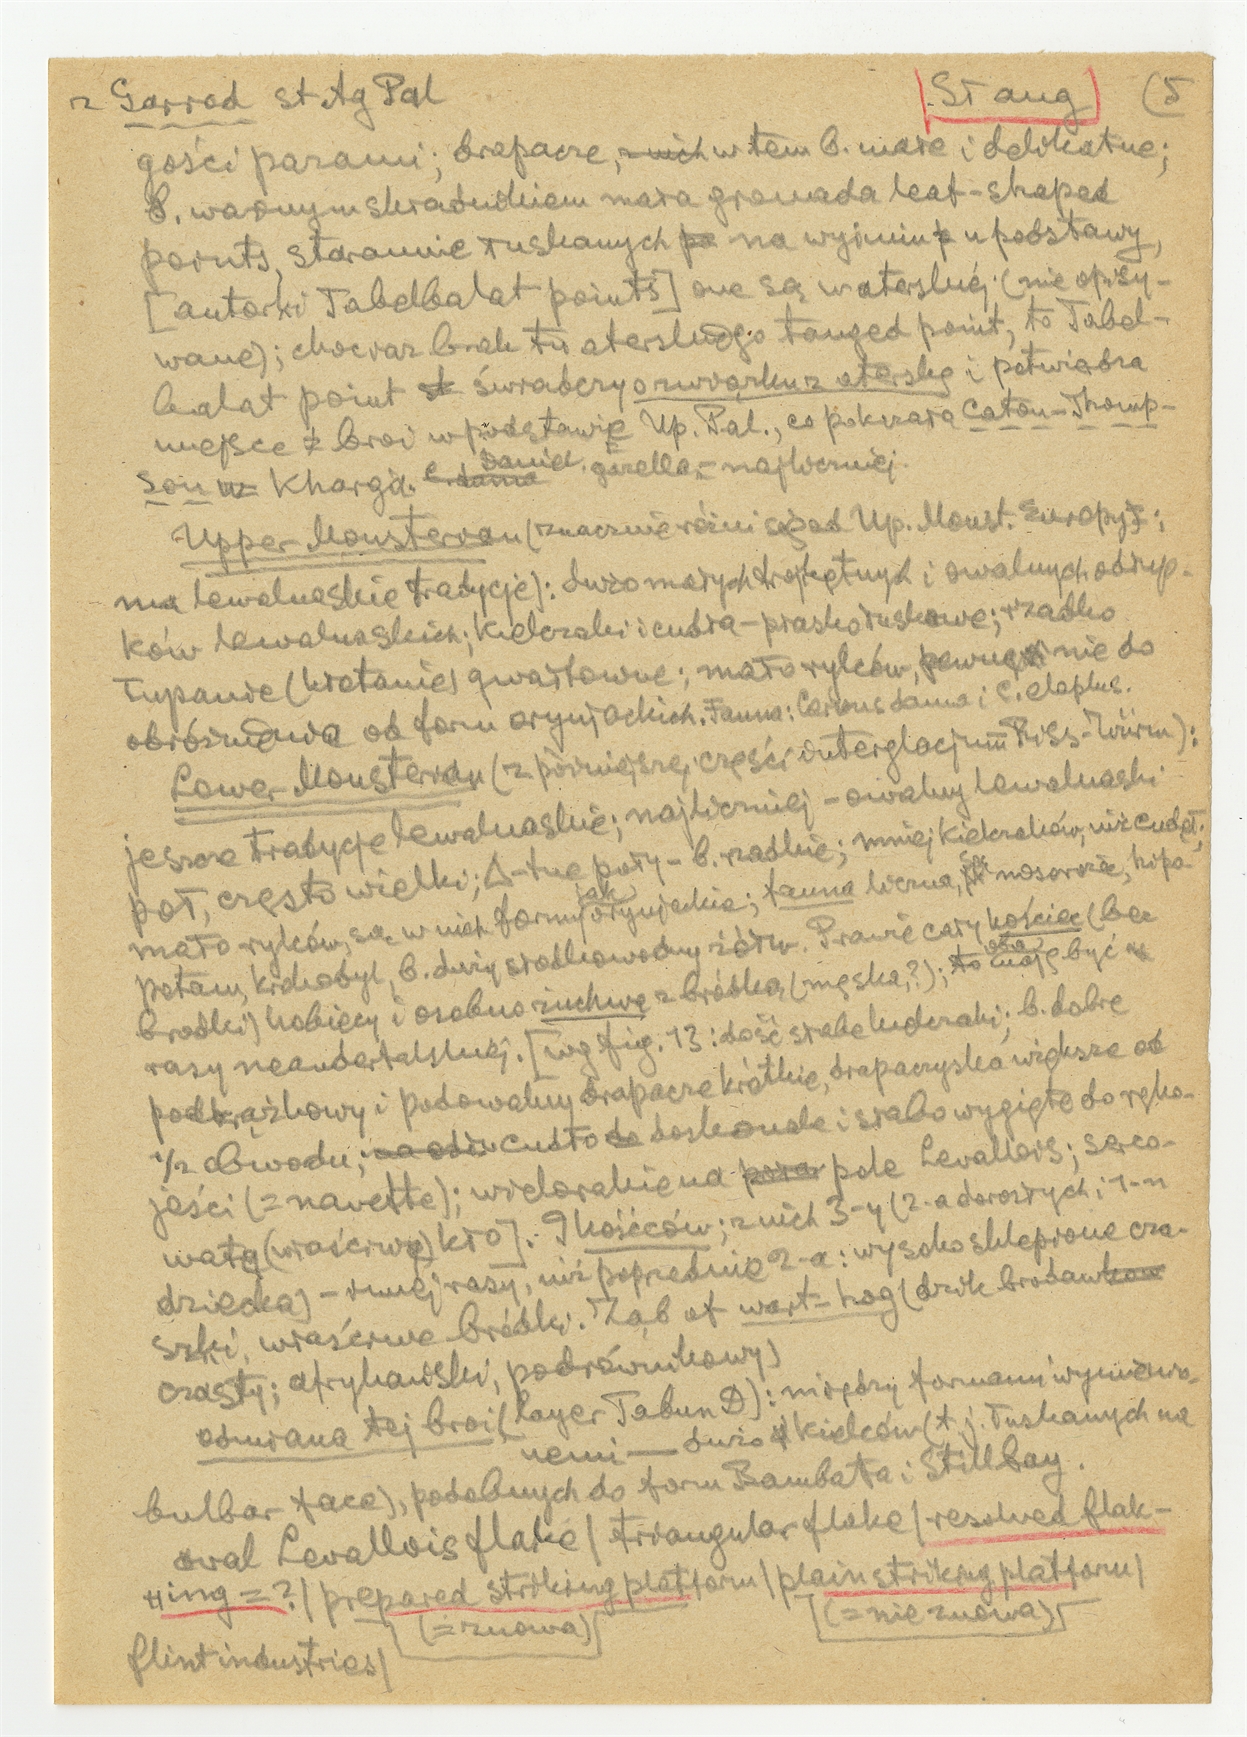 z Garrod St Ag Pal [St ang] (5
gości parami; drapacze, w tem b. małe i delikatne;
B. ważnym składnikiem mała gromada leaf-shaped
points, starannie łuskanych na wyimię u podstawy,
[autorki Tabelbalat points] one są w aterskiej (nie opisy-
wane); chociaż brak tu aterskiego tanged point, to Tabel-
balat point świadczy o związku z aterską i potwierdza
miejsce z broi w podstawie Up. Pal., co pokazała Caton-Thomp-
son w Kharga. C. dama i gazella – najliczniej.
Upper Mousterian (znacznie różni się od Up. Moust. Europy;
ma lewaluaskie tradycje): dużo małych trójkątnych i owalnych odłup-
ków lewaluaskich; kielczaki i cudła – płasko łuskowe; rzadko
łupanie (kłotanie) gwałtowne; mało rylców, pewne nie do
obróżnienia od form orynjackich. Fauna: Cervus dama i C. elaphus.
Lower Mousterian (z późniejszej części interglacjum Riss-Würm):
jeszcze tradycje lewaluaskie; najliczniej – owalny lewaluaski
poł, często wielki; Δ-tne poły – b. rzadkie; mniej kielczaków, niż cudeł;
mało rylców, są w nich formy jak orynjackie; fauna liczna, nosorożec, hipo-
potam, krokodyl, b. duży słodkowodny żółw. Prawie cały kościec (bez
brodki) kobiecy i osobno żuchwę z bródką (męska?); oba mają być
rasy neandertalskiej. [wg fig. 13: dość słabe kielczaki; b. dobre
podkrążkowy i podowalny drapacze krótkie, drapaczyska większe od
1/2 obwodu; cudło doskonale i słabo wygięte do ręko-
jeści (= navette); wielorakie na pole Levallois; serco-
watę (właściwe) kło]. 9 kośćców; z nich 3-y (2-a dorosłych i 1-n
dziecka) – innej rasy, niż poprzednie 2-a: wysoko sklepione cza-
szki, właściwe bródki. Ząb of wart-hog (dzik brodaw
czasty; afrykański, podrównikowy)
odmiana tej broi (layer Tabun D): między formami wymienio-
nemi — dużo kielców (t.j. łuskanych na
bulbar face), podobnych do form Bambata i Stillbay.
oval Levallois flake / triangular flake / resolved flak-
ing = ? / prepared striking platform / plain striking platform /
[(= znowa)] [(= nie znowa)]
flint industries /